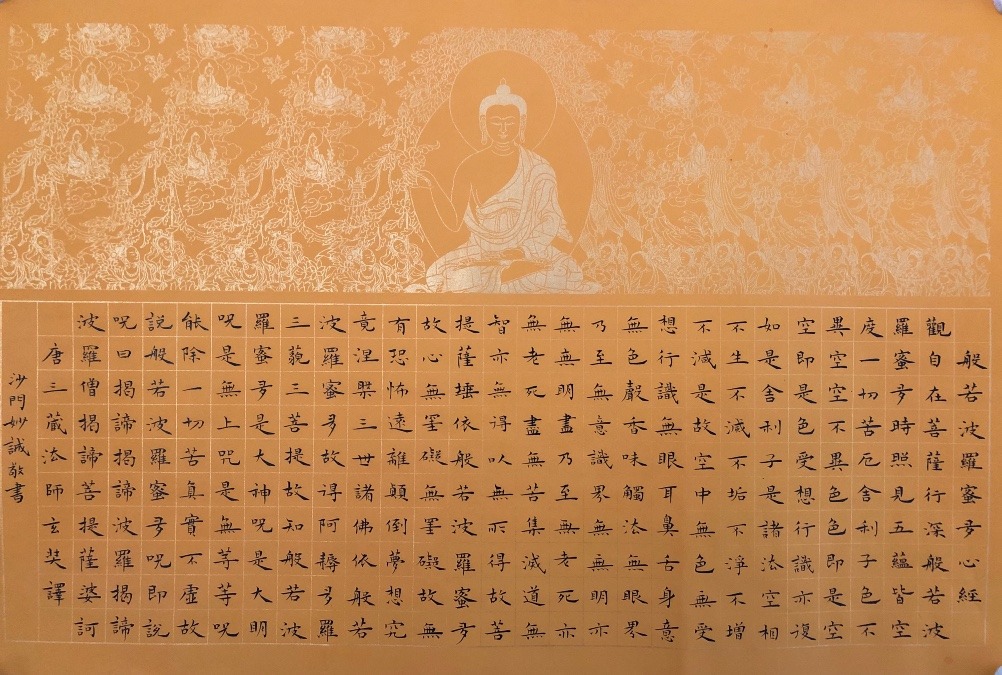 般若波羅蜜多心經
觀自在菩薩行深般若波
羅蜜多時照見五蘊皆空
度一切苦厄舍利子色不
異空空不異色色即是空
空即是色受想行識亦復
如是舍利子是諸法空相
不生不滅不垢不淨不增
不減是故空中無色無受
想行識無眼耳鼻舌身意
無色聲香味觸法無眼界
乃至無意識界無無明亦
無無明盡乃至無老死亦
無老死盡無苦集滅道無
智亦無得以無所得故菩
提薩埵依般若波羅蜜多
故心無罣礙無罣礙故無
有恐怖遠離顛倒夢想究
竟涅槃三世諸佛依般若
波羅蜜多故得阿耨多羅
三藐三菩提故知般若波
羅蜜多是大神呪是大明
呪是無上呪是無等等呪
能除一切苦真實不虛故
說般若波羅蜜多呪即說
呪曰揭諦揭諦波羅揭諦
波羅僧揭諦菩提薩婆訶
唐三藏法師玄奘譯
沙門妙誠敬書